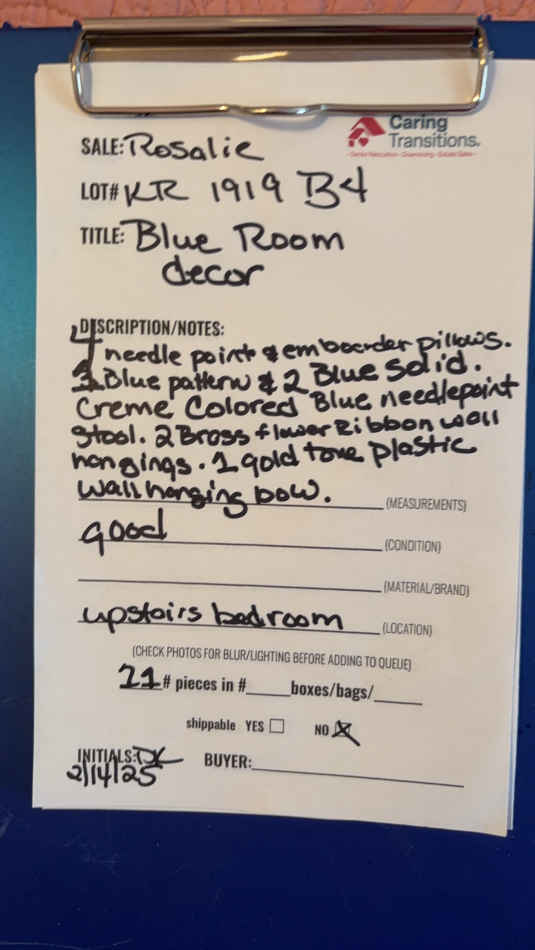 Caring
Transitions.
SALE: Rosalie
LOT# KR 1919 B4
TITLE: Blue Room
decor
DESCRIPTION/NOTES:
4 needle point & emboarder pillows.
3 Blue pattern & 2 Blue solid.
Creme Colored Blue needlepoint
Stool. 2 Brass flower Ribbon wall
hangings. 1 gold tone plastic
wall hanging bow. (MEASUREMENTS)
good (CONDITION)
(MATERIAL/BRAND)
upstairs bedroom (LOCATION)
(CHECK PHOTOS FOR BLUR/LIGHTING BEFORE ADDING TO QUEUE)
# pieces in # boxes/bags/
shippable YES NO
INITIALS: DK BUYER:
2/14/25